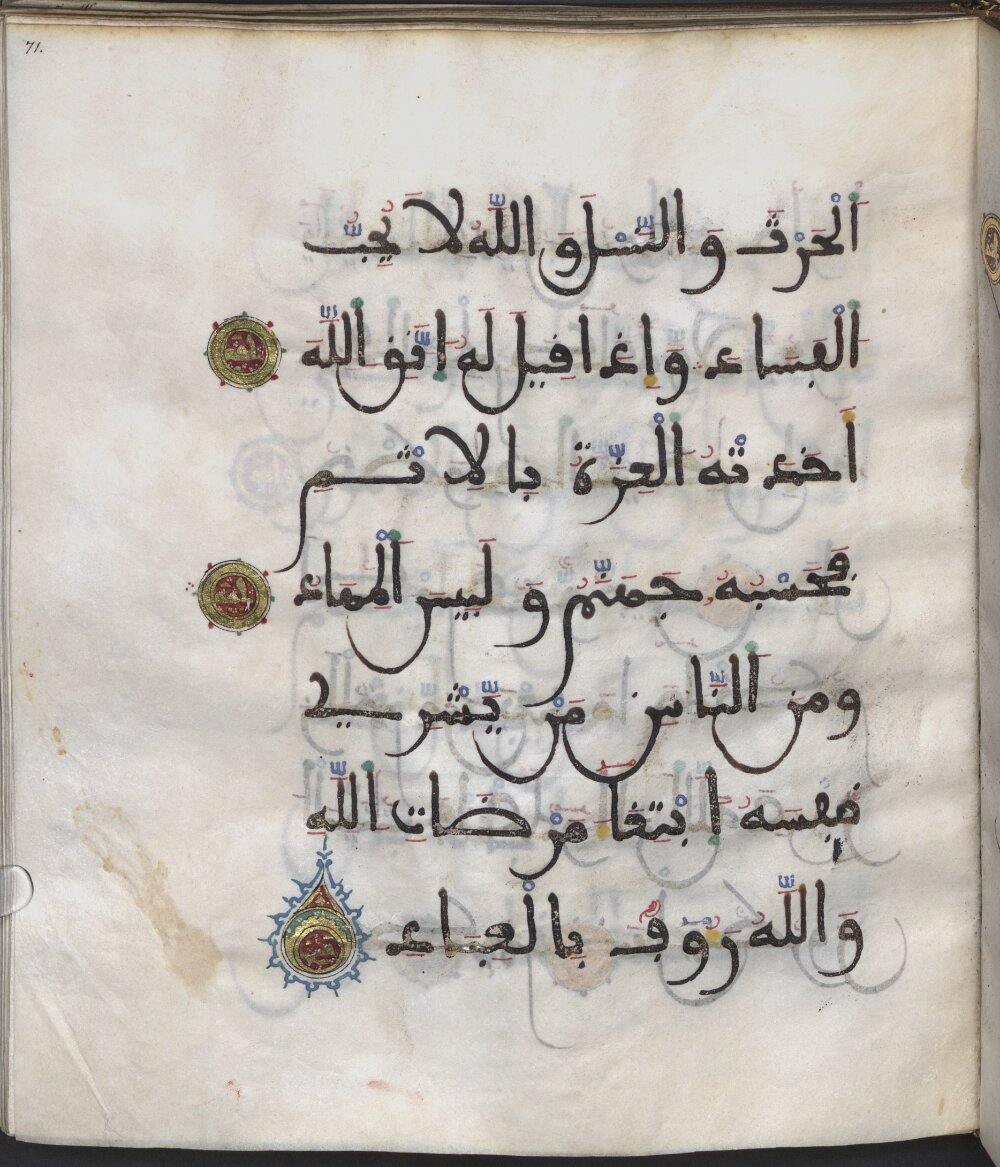 71.
اَ۬لْحَرْثَ وَالنَّسْلَ وَاللَّهُ لَا يُحِبُّ
اُ۬لْفَسَادَ وَإِذَا قِيلَ لَهُ اُ۪تَّقِ اِ۬للَّهَ
أَخَذَتْهُ الْعِزَّةُ بِالْإِثْمِ
فَحَسْبُهُ جَهَنَّمُ وَلَبِيسَ اَ۬لْمِهَادُ
وَمِنَ اَ۬لنَّاسِ مَنْ يَّشْرِي
نَفْسَهُ اُ۪بْتِغَا مَرْضَاتِ اِ۬للَّهِ
وَاللَّهُ رَءُوفٌ بِالْعِبَادِ